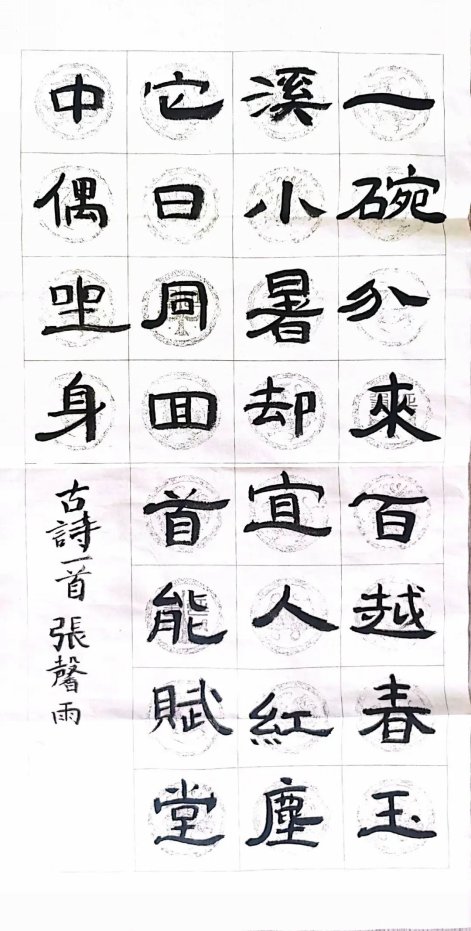 一碗分來百越春玉
溪小暑却宜人紅塵
它日同回首能賦堂
中偶坐身
古詩一首 張馨雨